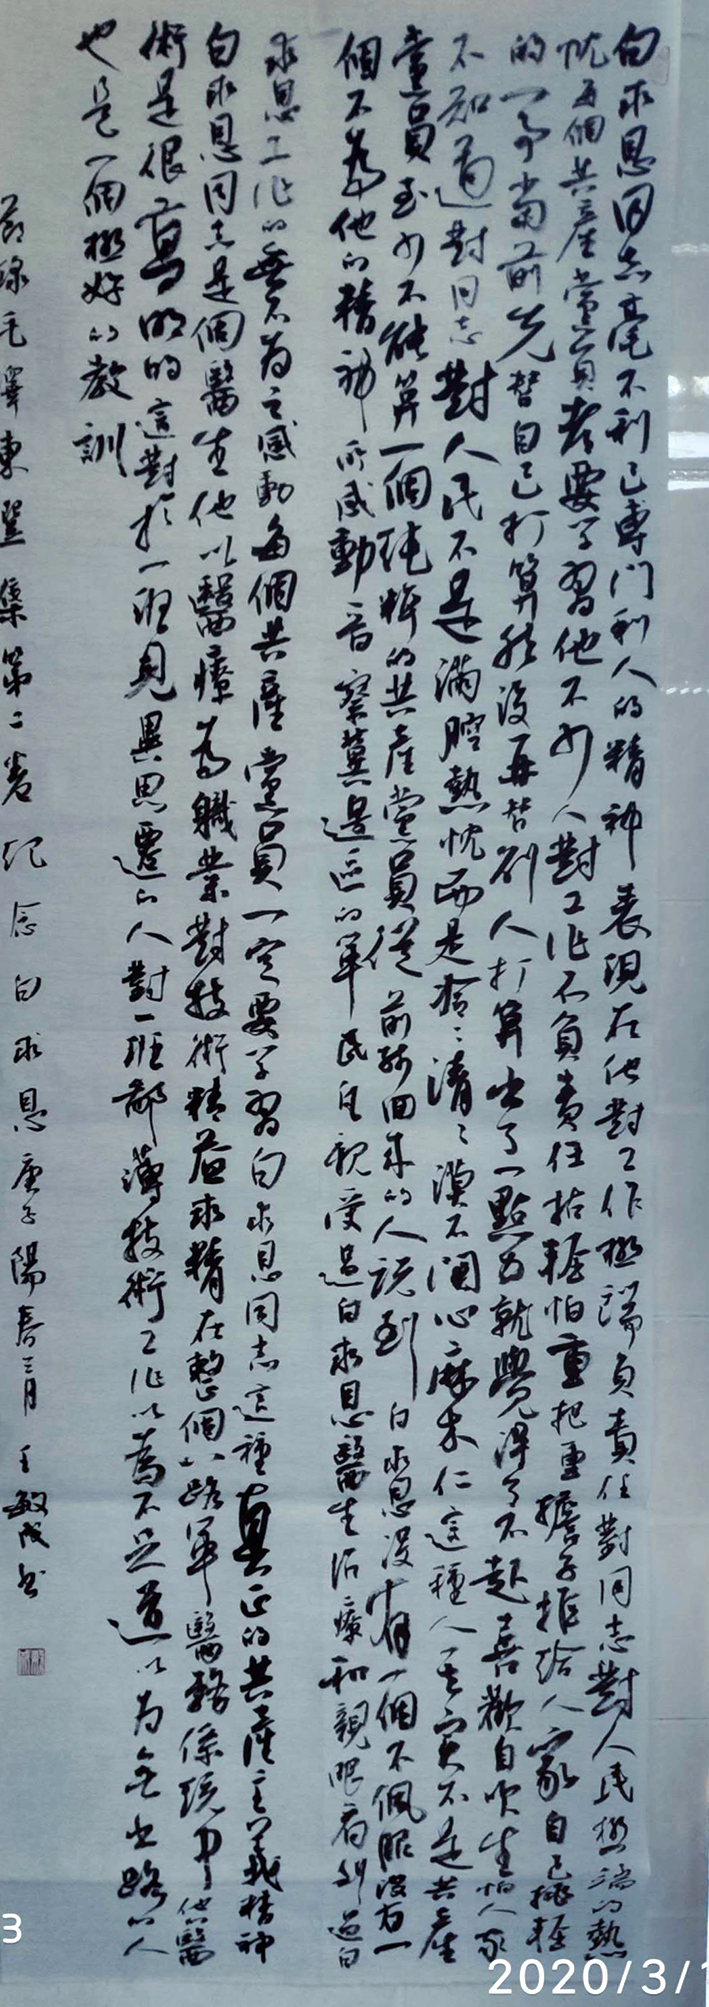 白求恩同志毫不利己專門利人的精神表現在他對工作極端負責任對同志對人民極端的熱
忱每個共產黨員都要學習他不少人對工作不負責任拈輕怕重把重擔子推給人家自己挑輕
的一事當前先替自己打算然後再替別人打算出了一點力就覺得了不起喜歡自吹生怕人家
不知道對同志對人民不是滿腔熱忱而是冷冷清清漠不關心麻木不仁這種人其實不是共產
黨員至少不能算一個純粹的共產黨員從前線回來的人說到白求恩沒有一個不佩服沒有一
個不為他的精神所感動晉察冀邊區的軍民凡親身受過白求恩醫生治療和親眼看到過白
求恩工作的無不為之感動每個共產黨員一定要學習白求恩同志這種真正的共產主義精神
白求恩同志是個醫生他以醫療為職業對技術精益求精在整個八路軍醫務係統中他醫
術是很高明的這對於一班見異思遷的人對一班鄙薄技術工作以為不足道以為無出路的人
也是一個極好的教訓
節錄毛澤東選集第二卷紀念白求恩庚子陽春三月王敏成書
3
2020/3/1